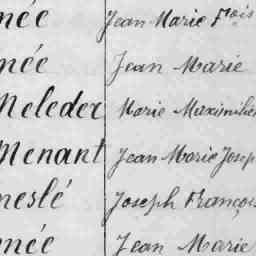 née Jean Marie Fçois
née Jean Marie
Meleder Marie Maximilien
Menant Jean Marie Josep
neslé Joseph François
née Jean Marie